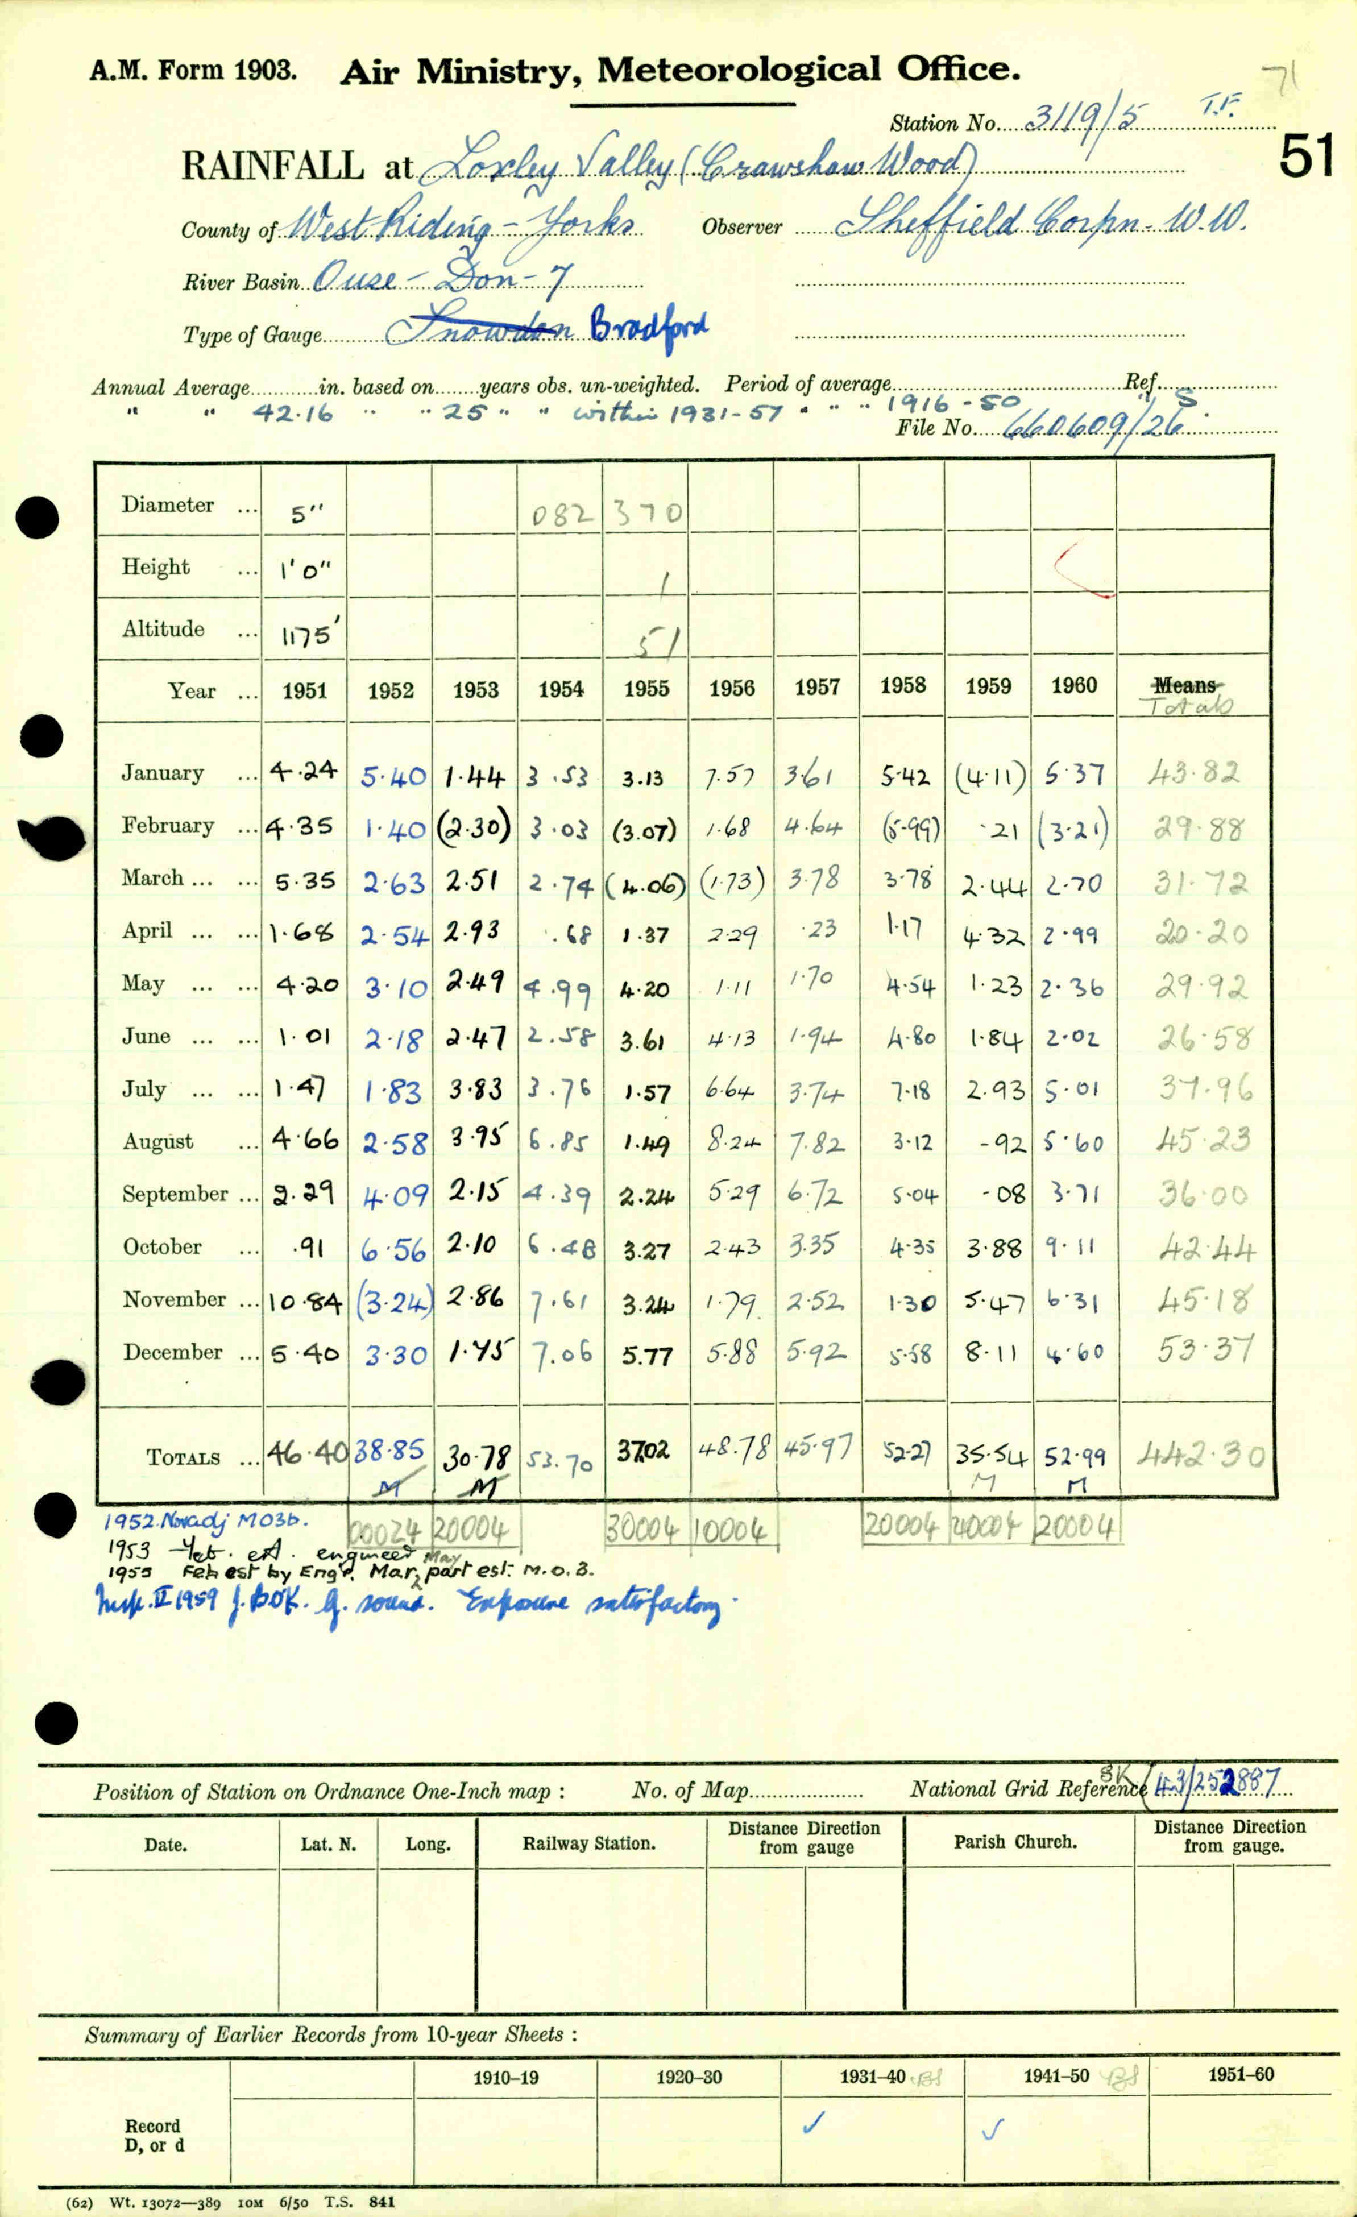 A.M. Form 1903. Air Ministry, Meteorological Office. 71
Station No. 3119/5 T.F.
51
RAINFALL at Loxley Valley (Crawshaw Wood)
County of West Riding - Yorks Observer Sheffield Corpn. W.W.
River Basin Ouse - Don - 7
Type of Gauge Snowdon Bradford
Annual Average in. based on years obs. un-weighted. Period of average Ref.
" " 42.16 " " 25 " " within 1931-57 " " " 1916-50 " S.
File No. 660609/26
Diameter ... 5" 082 370
Height ... 1'0" 1
Altitude ... 1175' 51
Year ... 1951 1952 1953 1954 1955 1956 1957 1958 1959 1960 Means
Totals
January ... 4.24 5.40 1.44 3.53 3.13 7.57 3.61 5.42 (4.11) 5.37 43.82
February ... 4.35 1.40 (2.30) 3.03 (3.07) 1.68 4.64 (5.99) .21 (3.21) 29.88
March ... ... 5.35 2.63 2.51 2.74 (4.06) (1.73) 3.78 3.78 2.44 2.70 31.72
April ... ... 1.68 2.54 2.93 .68 1.37 2.29 .23 1.17 4.32 2.99 20.20
May ... ... 4.20 3.10 2.49 4.99 4.20 1.11 1.70 4.54 1.23 2.36 29.92
June ... ... 1.01 2.18 2.47 2.58 3.61 4.13 1.94 4.80 1.84 2.02 26.58
July ... ... 1.47 1.83 3.83 3.76 1.57 6.64 3.74 7.18 2.93 5.01 37.96
August ... 4.66 2.58 3.95 6.85 1.49 8.24 7.82 3.12 .92 5.60 45.23
September ... 2.29 4.09 2.15 4.39 2.24 5.29 6.72 5.04 .08 3.71 36.00
October ... .91 6.56 2.10 6.48 3.27 2.43 3.35 4.35 3.88 9.11 42.44
November ... 10.84 (3.24) 2.86 7.61 3.24 1.79 2.52 1.30 5.47 6.31 45.18
December ... 5.40 3.30 1.75 7.06 5.77 5.88 5.92 5.58 8.11 4.60 53.37
TOTALS ... 46.40 38.85 30.78 53.70 37.02 48.78 45.97 52.27 35.54 52.99 442.30
M M M M
00024 20004 30004 10004 20004 40004 20004
1952. Nov adj MO3b.
1953 Feb. est. engineer
1955 Feb est by Engr. Mar, May part est: M.O.3.
Insp. II 1959 J. BOK. G. sound. Exposure satisfactory.
Position of Station on Ordnance One-Inch map : No. of Map National Grid Reference SK (43/252887
Date. Lat. N. Long. Railway Station. Distance Direction from gauge Parish Church. Distance Direction from gauge.
Summary of Earlier Records from 10-year Sheets :
1910–19 1920–30 1931–40 BS 1941–50 BS 1951–60
Record ✓ ✓
D, or d
(62) Wt. 13072—389 10M 6/50 T.S. 841